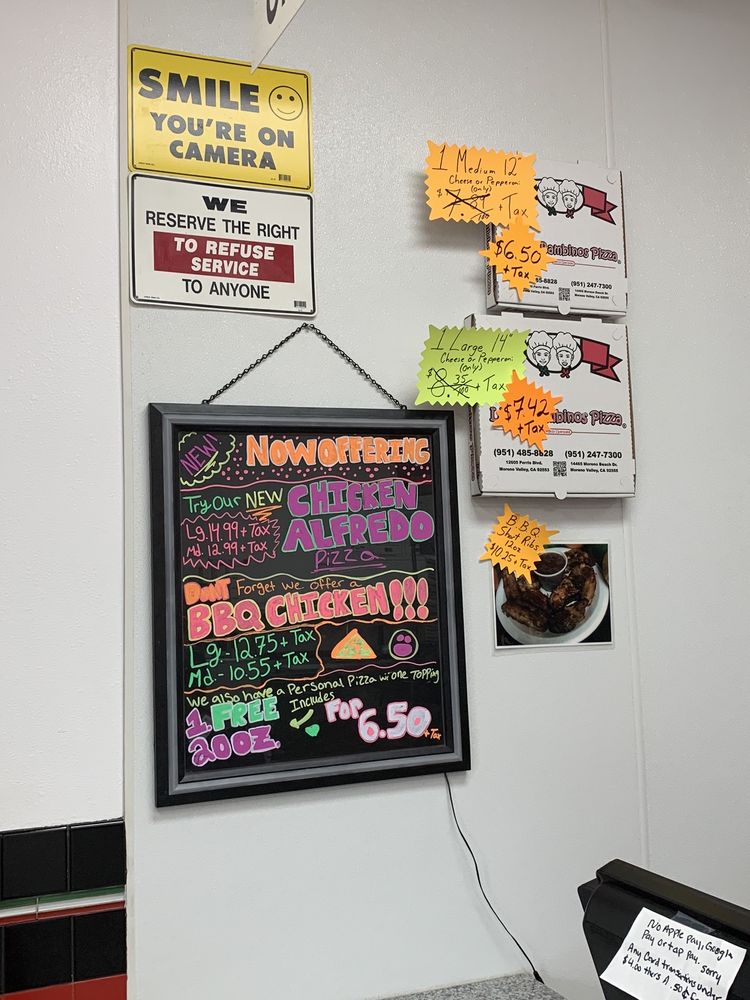 SMILE
YOU'RE ON
CAMERA
WE
RESERVE THE RIGHT
TO REFUSE
SERVICE
TO ANYONE
1 Medium 12"
Cheese or Pepperoni
(only)
+ Tax
$6.50
+ Tax
ambinos Pizza
85-8828 (951) 247-7300
Moreno Valley, CA
1 Large 14"
Cheese or Pepperoni
(only)
$8.35 + Tax
$7.42
+ Tax
binos Pizza
(951) 485-8828 (951) 247-7300
12605 Perris Blvd. 14465 Moreno Beach Dr.
Moreno Valley, CA 92553 Moreno Valley, CA
B.B.Q
Short Ribs
12oz
$10.25 + Tax
NEW!
NOW OFFERING
Try Our NEW CHICKEN
ALFREDO
Pizza
Lg. 14.99 + Tax
Md. 12.99 + Tax
DONT Forget we offer a
BBQ CHICKEN!!!
Lg - 12.75 + Tax
Md - 10.55 + Tax
We also have a Personal Pizza w/ one Topping
Includes
1 FREE
20oz.
For 6.50 + Tax
No Apple pay, Google
Pay or tap pay. sorry
Any Card transactions under
$4.00 theres A .50¢